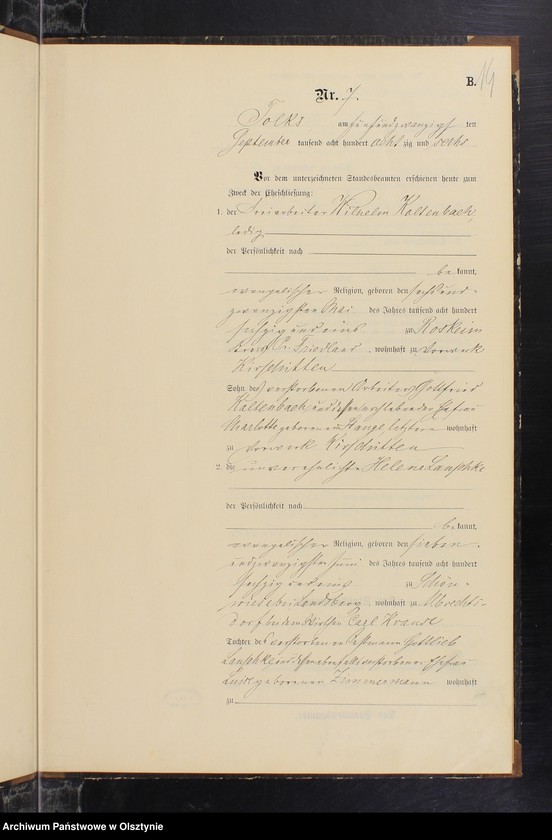 B. 14
Nr. 7.
Tolks am fünfundzwanzigs ten
September tausend acht hundert acht zig und sechs
Vor dem unterzeichneten Standesbeamten erschienen heute zum
Zweck der Eheschließung:
1. der Wilhelm Kaltenbach,
ledig
der Persönlichkeit nach
be kannt,
evangelischer Religion, geboren den sechsund-
zwanzigsten Mai des Jahres tausend acht hundert
sechzig und eins zu Roskeim
Kreis Pr. Friedland, wohnhaft zu Vorwerk
Kirschitten
Sohn des verstorbenen Arbeiters Gottfried
Kaltenbach und dessen Ehefrau
geborenen letztere wohnhaft
zu Vorwerk Kirschitten
2. die unverehelichte Helene Lauschke
der Persönlichkeit nach
be kannt,
evangelischer Religion, geboren den sieben-
undzwanzigsten Juni des Jahres tausend acht hundert
sechzig und eins zu Schön-
wiese bei Landsberg wohnhaft zu Albrechts-
dorf bei dem Wirthen Carl
Tochter des verstorbenen Gottlieb
Lauschke und dessen ebenfalls verstorbenen Ehefrau
geborenen Zimmermann wohnhaft
zu
Archiwum Państwowe w Olsztynie